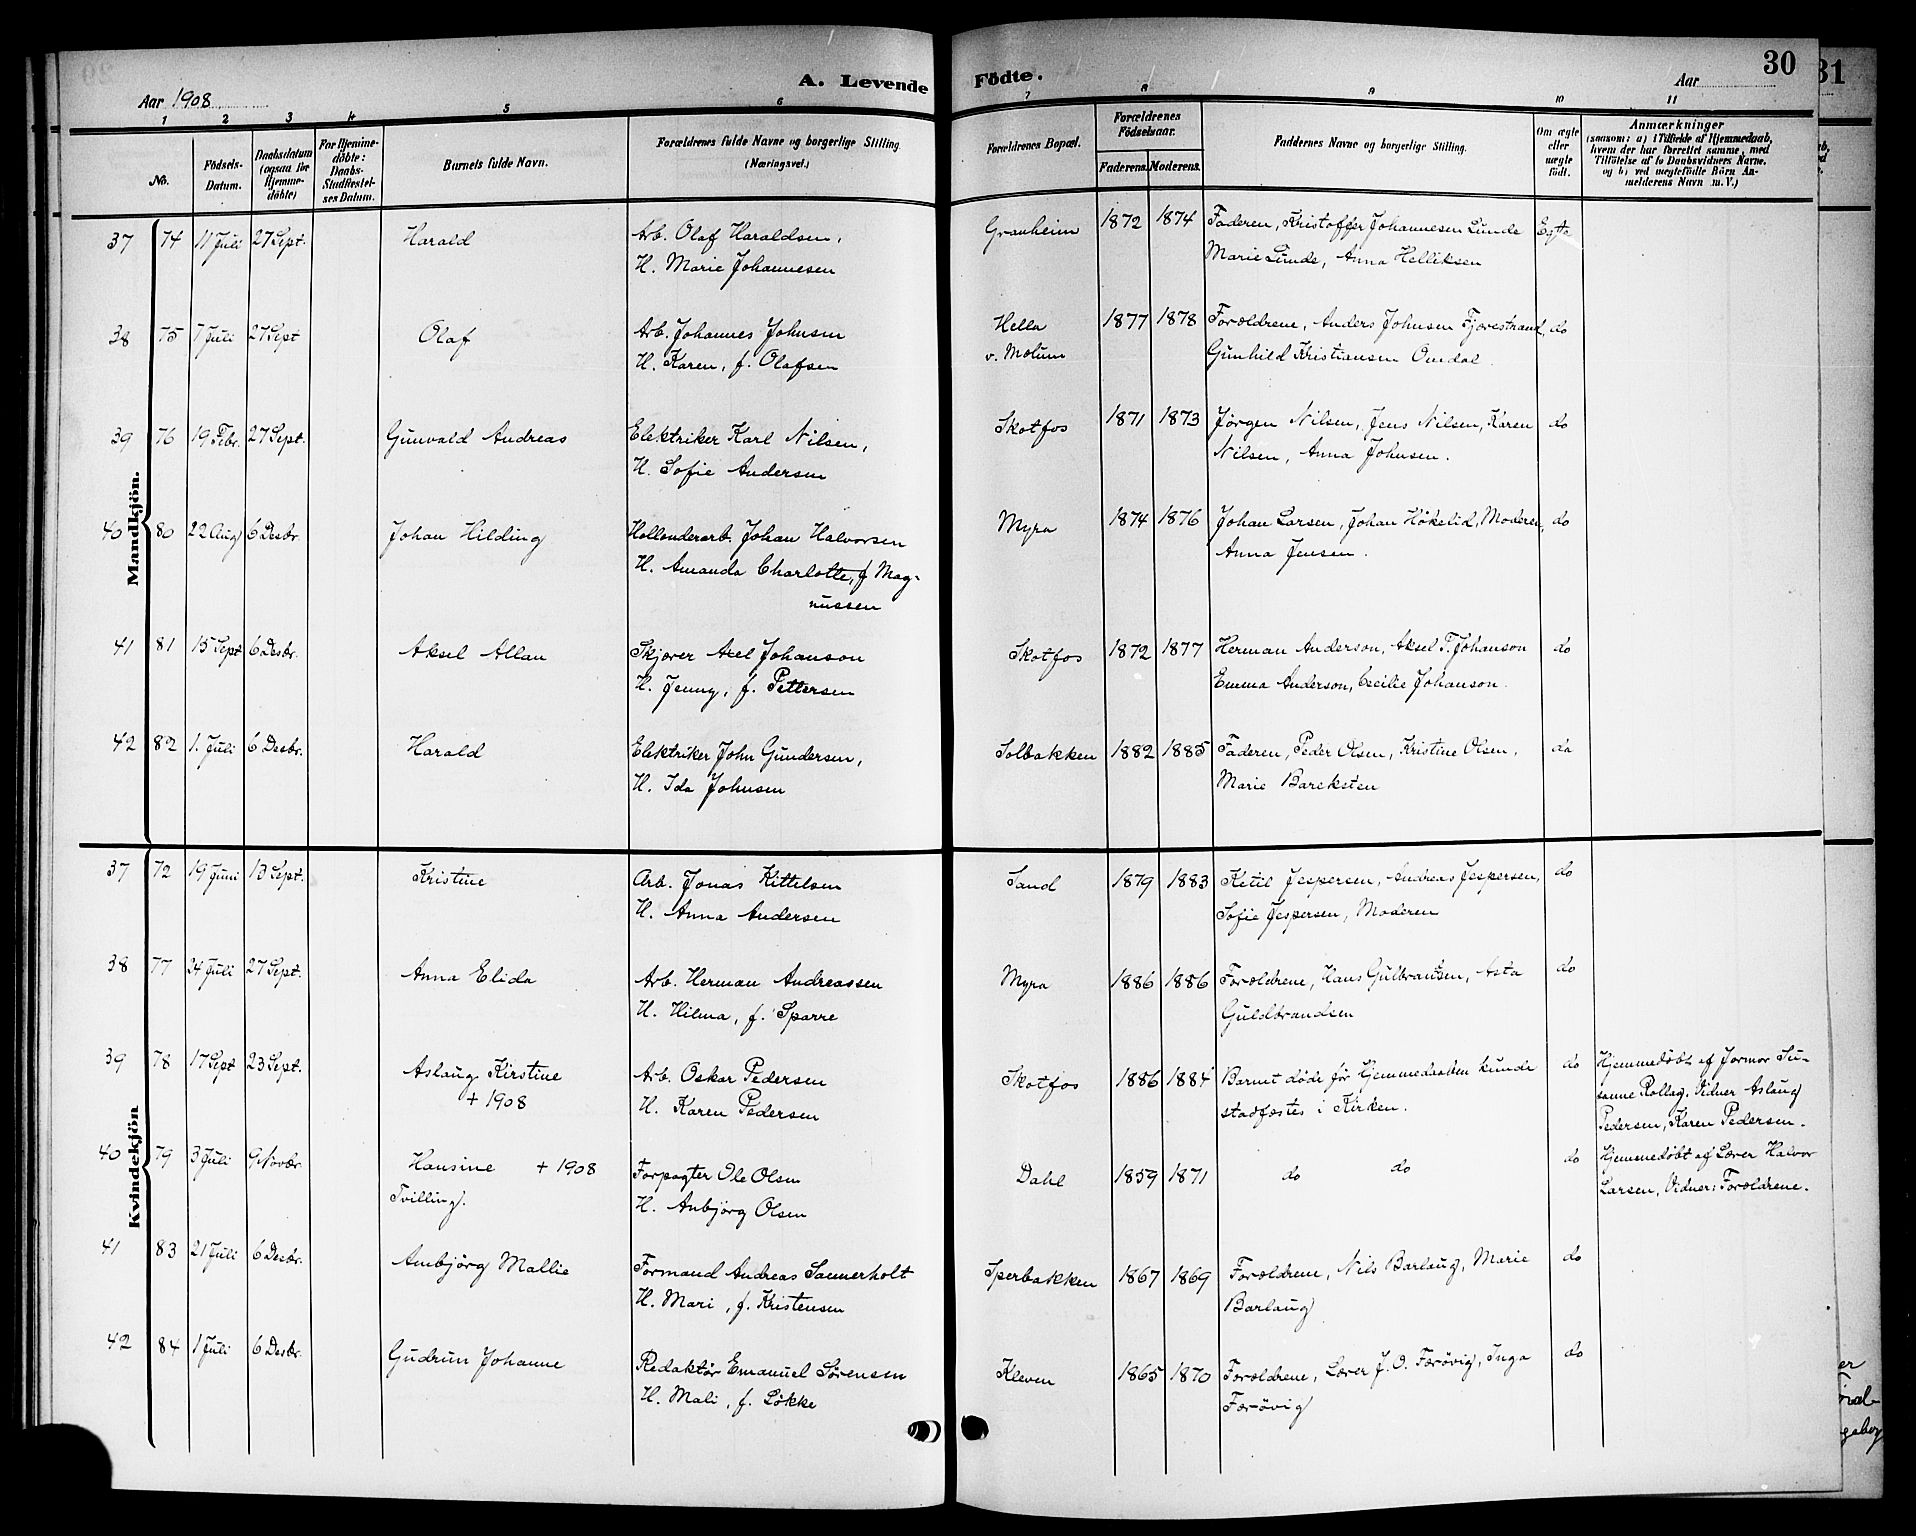 A. Levende Födte.
30
31
Aar 1908
Aar
1 2 3 4 5 6 7 8 9 10 11
No.
Födsels-
Datum.
Daabsdatum
(ogsaa for
Hjemme-
döbte)
For Hjemme-
döbte:
Daabs-
Stadfæstel-
ses Datum.
Barnets fulde Navn.
Forældrenes fulde Navne og borgerlige Stilling
(Næringsvei.)
Forældrenes Bopæl.
Forældrenes
Födselsaar.
Faderens. Moderens.
Faddernes Navne og borgerlige Stilling.
Om ægte
eller
uægte
födt.
Anmærkninger
(saasom: a) i Tilfælde af Hjemmedaab,
hvem der har forrettet samme, med
Tilföielse af to Daabsvidners Navne,
og b) ved uægtefödte Börn An-
melderens Navn m. V.)
Mandkjön.
37 74 11 Juli 27 Sept. Harald Arb. Olaf Haraldsen, Granheim 1872 1874 Faderen, Kristoffer Johannesen Lunde Egte
H. Marie Johannesen Marie Lunde, Anna Helliksen
38 75 7 Juli 27 Sept Olaf Arb. Johannes Johnsen Hella 1877 1878 Forældrene, Anders Johnsen Fjærestrand, do
H. Karen, f. Olafsen v. Molum Gunhild Kristiansen Omdal.
39 76 19 Febr. 27 Sept. Gunvald Andreas Elektriker Karl Nilsen, Skotfos 1871 1873 Jørgen Nilsen, Jens Nilsen, Karen do
H. Sofie Andersen Nilsen, Anna Johnsen.
40 80 22 Aug 6 Desbr. Johan Hilding Hollenderarb. Johan Halvorsen Myra 1874 1876 Johan Larsen, Johan Høkelid, Moderen, do
H. Amanda Charlotte, f Mag- Anna Jensen.
nussen
41 81 15 Sept 6 Desbr. Aksel Allan Skjærer Axel Johanson Skotfos 1872 1877 Herman Anderson, Aksel T. Johanson do
H. Jenny, f. Pettersen Emma Anderson, Cecilie Johanson.
42 82 1. Juli 6 Desbr. Harald Elektriker John Gundersen, Solbakken 1882 1885 Faderen, Peder Olsen, Kristine Olsen, do
H. Ida Johnsen Marie Bareksten
Kvindekjön
37 72 19 Juni 13 Sept. Kristine Arb. Jonas Kittelsen Sand 1879 1883 Ketil Jespersen, Andreas Jespersen, do
H. Anna Andersen Sofie Jespersen, Moderen
38 77 24 Juli 27 Sept. Anna Elida Arb. Herman Andreassen Myra 1886 1886 Forældrene, Hans Gulbrandsen, Asta do
H. Hilma, f. Sparre Guldbrandsen
39 78 17 Sept 23 Sept. Aslaug Kirstine Arb. Oskar Pedersen Skotfos 1886 1884 Barnet døde før Hjemmedaaben kunde do Hjemmedøbt af Jormor Su-
+ 1908 H. Karen Pedersen stadfæstes i Kirken. sanne Rollag. Vidner Aslaug
Pedersen, Karen Pedersen.
40 79 3 Juli 9 Novbr. Hansine + 1908 Forpagter Ole Olsen Dahl 1859 1871 do do do Hjemmedøbt af Lærer Halvor
Tvilling. H. Anbjørg Olsen Larsen, Vidner: Forældrene.
41 83 21 Juli 6 Desbr. Ambjørg Mallie Formand Andreas Sannerholt Sperbakken 1867 1869 Forældrene, Nils Barlaug, Marie do
H. Mari, f. Kristensen Barlaug
42 84 1 Juli 6 Desbr. Gudrun Johanne Redaktør Emanuel Sørensen Kleven 1865 1870 Forældrene, Lærer J. O. Færøvig, Inga do
H. Mali, f. Løkke Færøvig